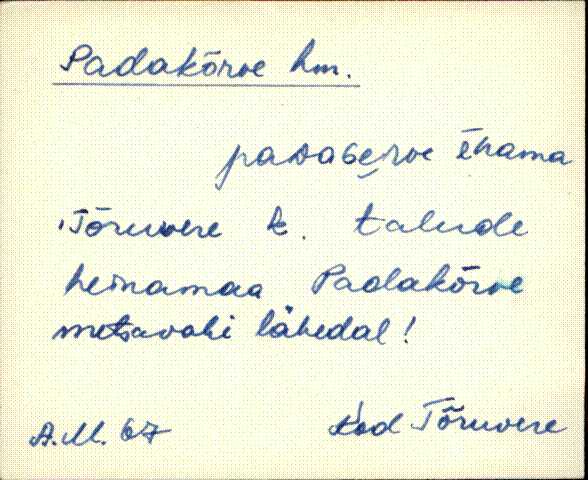 Padakõrve hm.
ēnama
Tõruvere k. talude
heinamaa Padakõrve
metsavahi lähedal!
A.M. 67 Kod Tõruvere